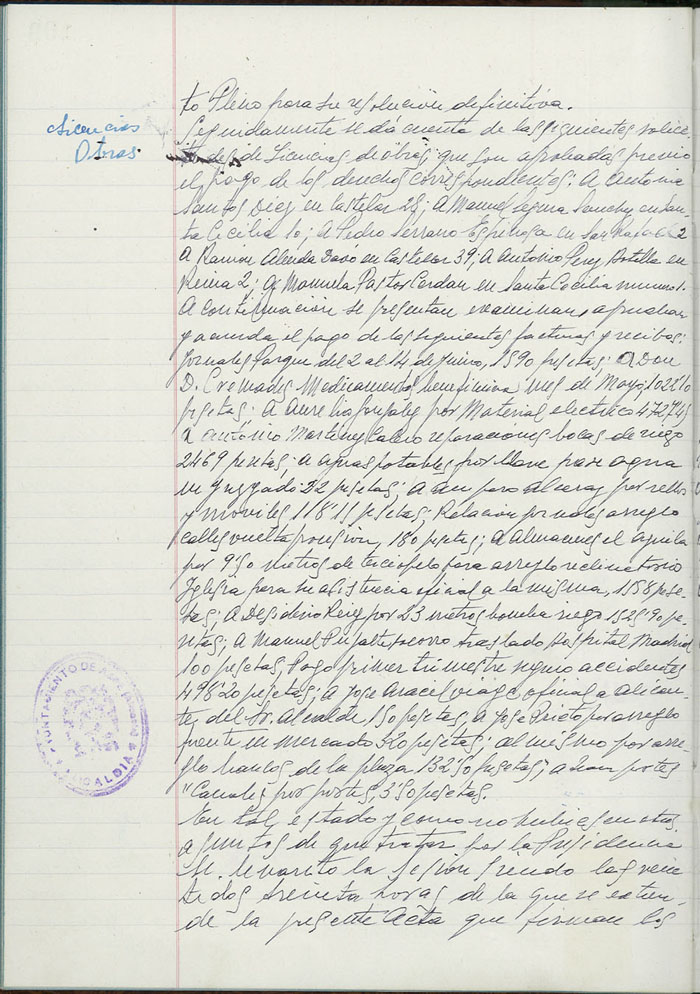 Licencias
Obras
to Pleno para su resolución definitiva.
Seguidamente se dá cuenta de las siguientes solici-
tudes de Licencias de obras que son aprobadas previo
el pago de los derechos correspondientes: A Antonio
Santos Diez en Castelar 28; A Manuel Segura Sanchez en San-
ta Cecilia 10; A Pedro Serrano Espinosa en San Rafael 2
A Ramon Alenda Davó en Castelar 39; A Antonio Perez Botella en
Reina 2; a Manuela Pastor Cerdan en Santa Cecilia numero 1.
A continuación se presentan examinan, aprueban
y acuerda el pago de las siguientes facturas y recibos:
Jornales Parque del 2 al 14 de Junio, 1590 pesetas; a Don
D. Cremades Medicamentos beneficencia mes de Mayo,
pesetas; a Aurelia Gonzalez por Material electrico 472,74;
a Antonio Martinez Calvo reparaciones bocas de riego
2469 pesetas; a aguas potables por llave paso agua
en Juzgado 32 pesetas; a Amparo Alcaraz por sellos
y moviles 118'15 pesetas; Relación jornales arreglo
calles vuelta procesion, 180 pesetas; a almacenes el aguila
por 9'50 metros de terciopelo para arreglo reclinatorio
Iglesia para su asistencia oficial a la misma, 1558 pese-
tas; A Desiderio Reig por 23 metros bomba riego 1525'90 pe-
setas; A Manuel socorro traslado Hospital Madrid
100 pesetas, Pago primer trimestre seguro accidentes
498'20 pesetas; a Jose Aracel viage oficial a Alican-
te, del Sr. Alcalde 150 pesetas, a Jose Prieto por arreglo
fuente en mercado 320 pesetas; al mismo por arre-
glo bancos de la plaza 132'50 pesetas a transportes
"Canales por portes, 3'50 pesetas.
En tal estado y como no hubiesen otros
asuntos de que tratar por la Presidencia
se levantó la sesion siendo las vein-
tidos treinta horas de la que se extien-
de la presente Acta que firman los
AYUNTAMIENTO DE
ALCALDIA